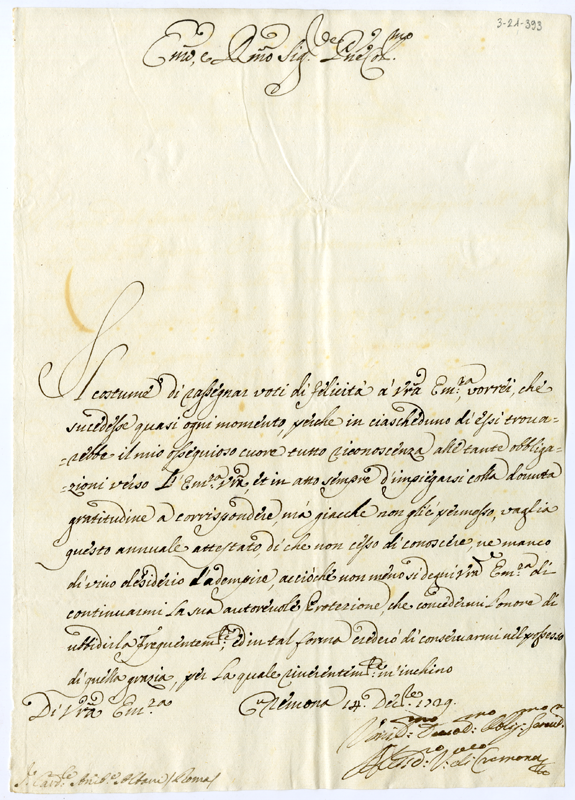 3-21-393
Emo, e Rmo Sig.r Pne Col.mo
Il costume di rassegnar voti di felicità à Vrã Em.za vorrei, che
succedesse quasi ogni momento, perche in ciascheduno di essi trova-
-rebbe il mio ossequioso cuore tutto riconoscenza alle tante obbliga-
-zioni verso L'Em.za Vrã, et in atto sempre d'impiegarsi colla dovuta
gratitudine a corrispondere, ma giacche non gli é permesso, vaglia
questo annuale attestato di che non cesso di conoscere, ne manco
di vivo desiderio d'adempire, accioche non meno si degni Vrã Em.za di
continuarmi la sua autorevole Protezione, che concedermi l'onore di
ubbidirla frequentem.te, ed in tal forma crederò di conservarmi nel possesso
di quella grazia, per la quale riverentem.te m'inchino
Di Vrã Em.za
Cremona 14. Dec.re 1729.
Umil.mo Devot.mo Obblig.mo Servid.
Aless.o V.o di Cremona
S.r Card.le Anib.e Albani / Roma